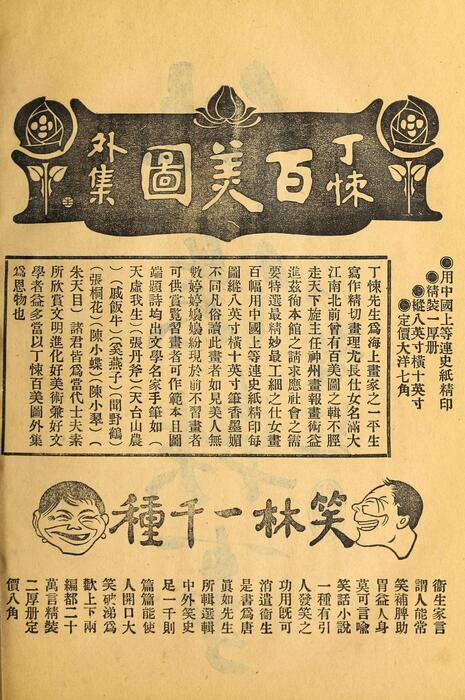 丁悚
百美圖
外集
●用中國上等連史紙精印
●精裝一厚册
●縱八英寸橫十英寸
●定價大洋七角
丁悚先生爲海上畫家之一平生
寫作精切畫理尤長仕女名滿大
江南北前曾有百美圖之輯不脛
走天下旋主任神州畫報畫術益
進茲徇本館之請求應社會之需
要特選最精妙最工細之仕女畫
百幅用中國上等連史紙精印每
圖縱八英寸橫十英寸筆香墨媚
不同凡俗讀此畫者如見美人無
數婷婷嬝嬝紛現於前不習畫者
可供賞覽習畫者可作範本且圖
端題詩均出文學名家手筆如（
天虛我生）（張丹斧）（天台山農
）（戚飯牛）（吳燕子）（聞野鶴）
（張桐花）（陳小蝶）（陳小翠）（
朱天目）諸君皆爲當代士夫素
所欣賞文明進化好美術兼好文
學者益多當以丁悚百美圖外集
爲恩物也
笑林一千種
衞生家言
謂人能常
笑補脾助
胃益人身
莫可言喻
笑話小說
一種有引
人發笑之
功用旣可
消遣衞生
是書爲唐
眞如先生
所輯選輯
中外笑史
足一千則
篇篇能使
人開口大
笑破涕爲
歡上下兩
編都二十
萬言精裝
二厚册定
價八角